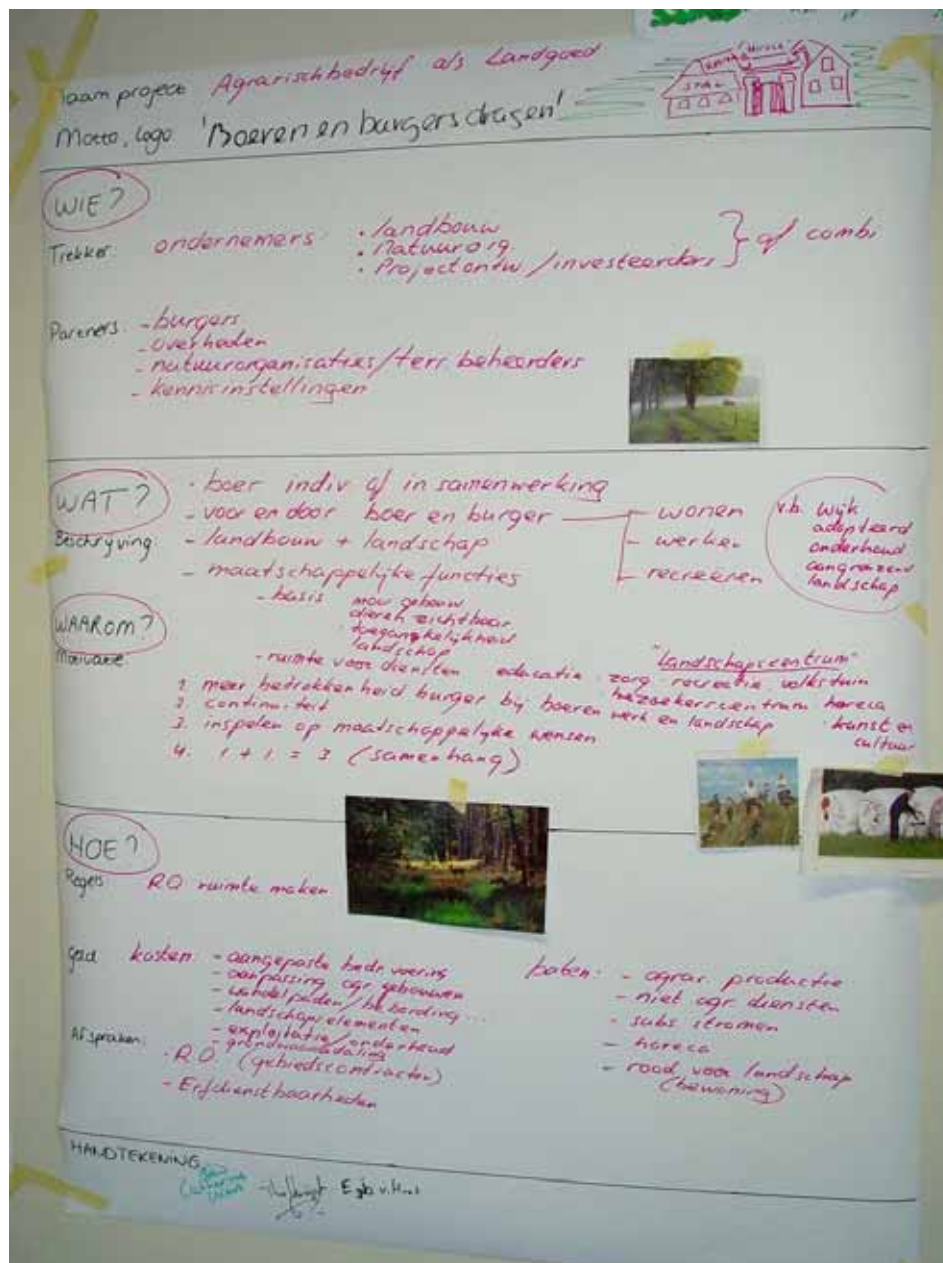 Naam project Agrarischbedrijf als Landgoed
Motto, logo 'Boeren en burgers dragen'
STAL
WIE?
Trekker: ondernemers: • landbouw
• Natuurorg.
• Projectontw. / investeerders } of combi
Partners: - burgers
- overheden
- natuurorganisaties / terr. beheerders
- kennisinstellingen
WAT?
Beschrijving:
• boer indiv of in samenwerking
- voor en door boer en burger — wonen
- werken
- recreëren
- landbouw + landschap
- maatschappelijke functies
- basis mooi gebouw
dieren zichtbaar
toegangkelijkheid
landschap
- ruimte voor diensten educatie · zorg · recreatie · volkstuin
v.b. wijk
adopteerd
onderhoud
aangrenzend
landschap
"Landschapscentrum"
bezoekerscentrum horeca
kunst en
cultuur
WAAROM?
Motivatie:
1. meer betrokkenheid burger bij boeren werk en landschap
2. continuïteit
3. inspelen op maatschappelijke wensen
4. 1 + 1 = 3 (samenhang)
HOE?
Regels RO ruimte maken
geld kosten: - aangepaste bedr. voering
- aanpassing agr gebouwen
- wandelpaden / bebording...
- landschapselementen
- exploitatie / onderhoud
baten: - agrar. productie
- niet agr diensten
- subs stromen
- horeca
- rood voor landschap
(bewoning)
Afspraken:
• R.O. (gebiedscontracten)
- Erfdienstbaarheden
HANDTEKENING